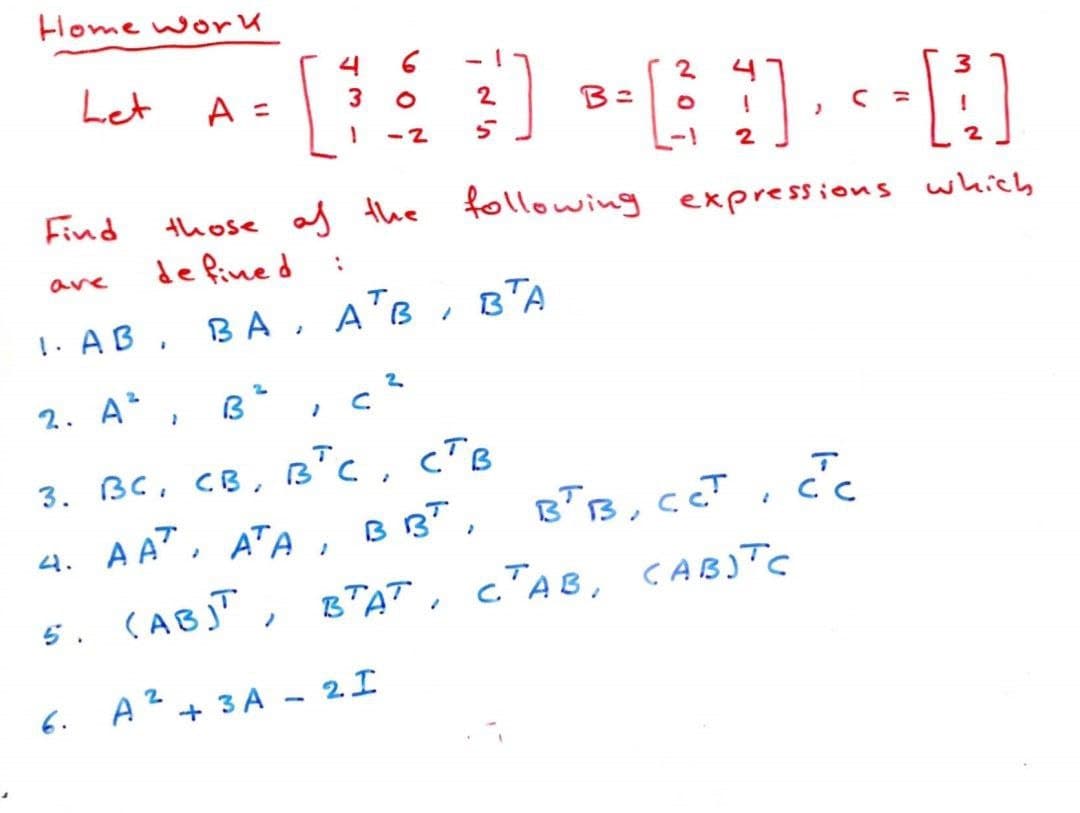 Home work
Let A = [ 4 6 -1 ; 3 0 2 ; 1 -2 5 ] B = [ 2 4 ; 0 1 ; -1 2 ] , C = [ 3 ; 1 ; 2 ]
Find those of the following expressions which
are defined :
1. AB , BA , AᵀB , BᵀA
2. A² , B² , C²
3. BC, CB, BᵀC, CᵀB
4. AAᵀ, AᵀA, BBᵀ, BᵀB, CCᵀ, CᵀC
5. (AB)ᵀ, BᵀAᵀ, CᵀAB, (AB)ᵀC
6. A² + 3A - 2I